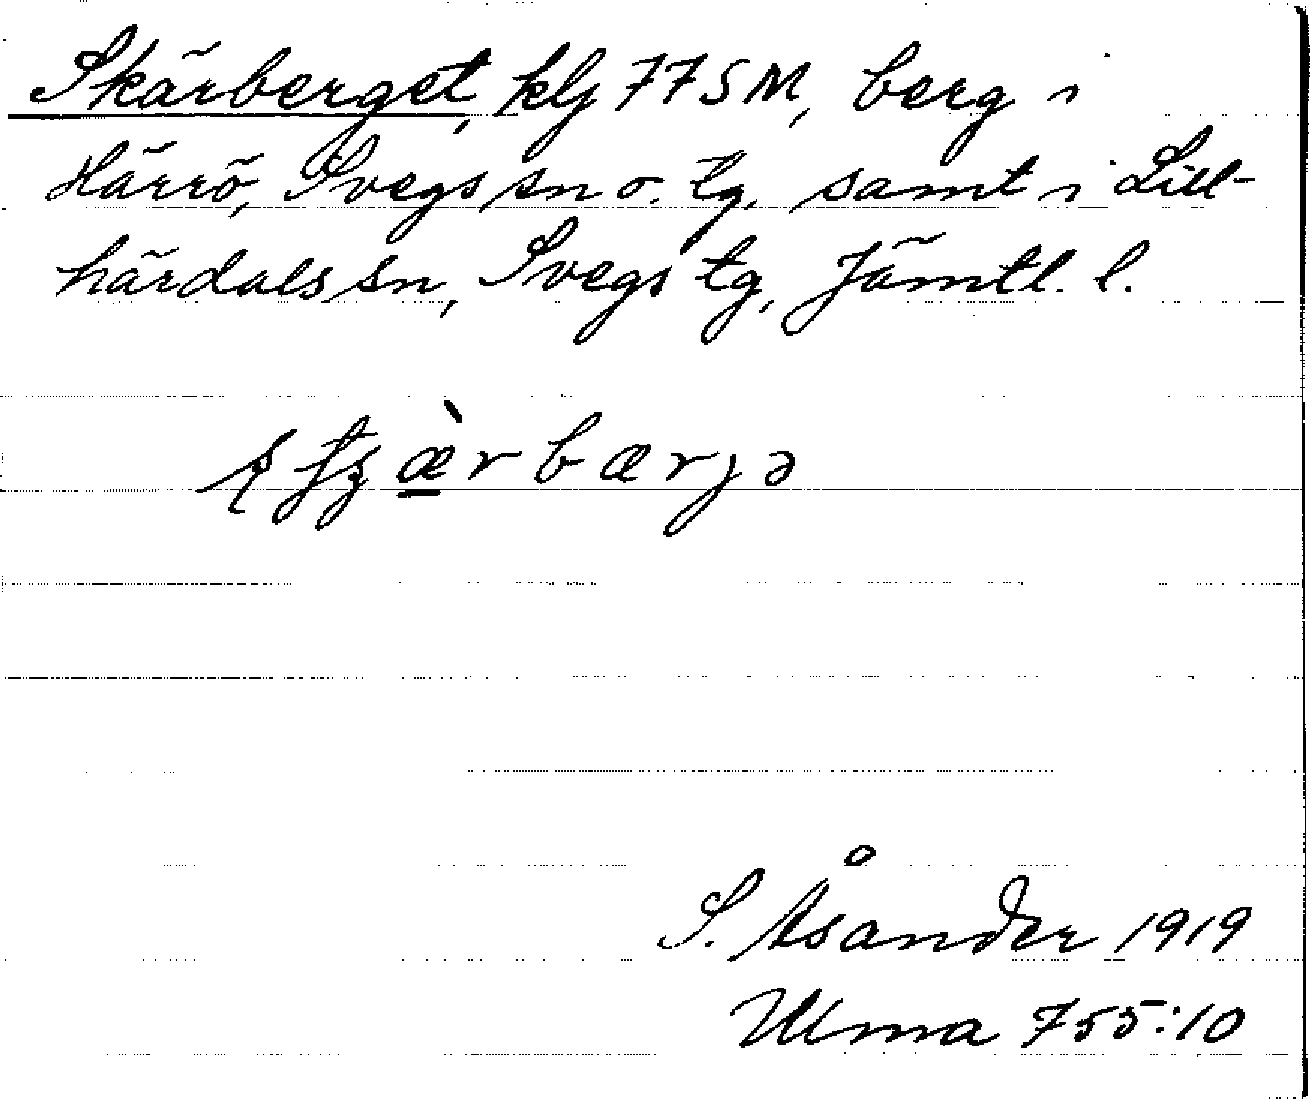 Skärberget, klj 77 SM, berg i
Härrö, Svegs sn o. tg, samt i Lill-
härdals sn, Svegs tg, Jämtl. l.
S. Åsander 1919
Ulma 755:10